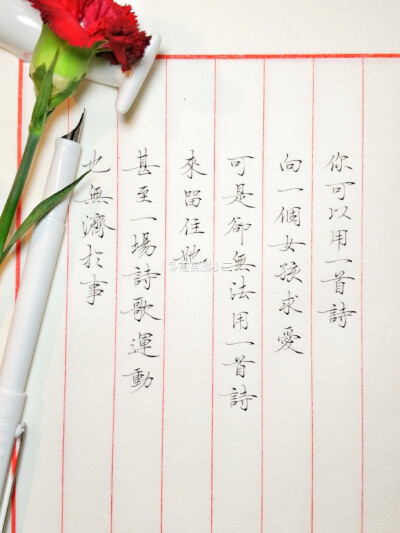 你可以用一首詩
向一個女孩求愛
可是卻無法用一首詩
來留住她
甚至一場詩歌運動
也無濟於事